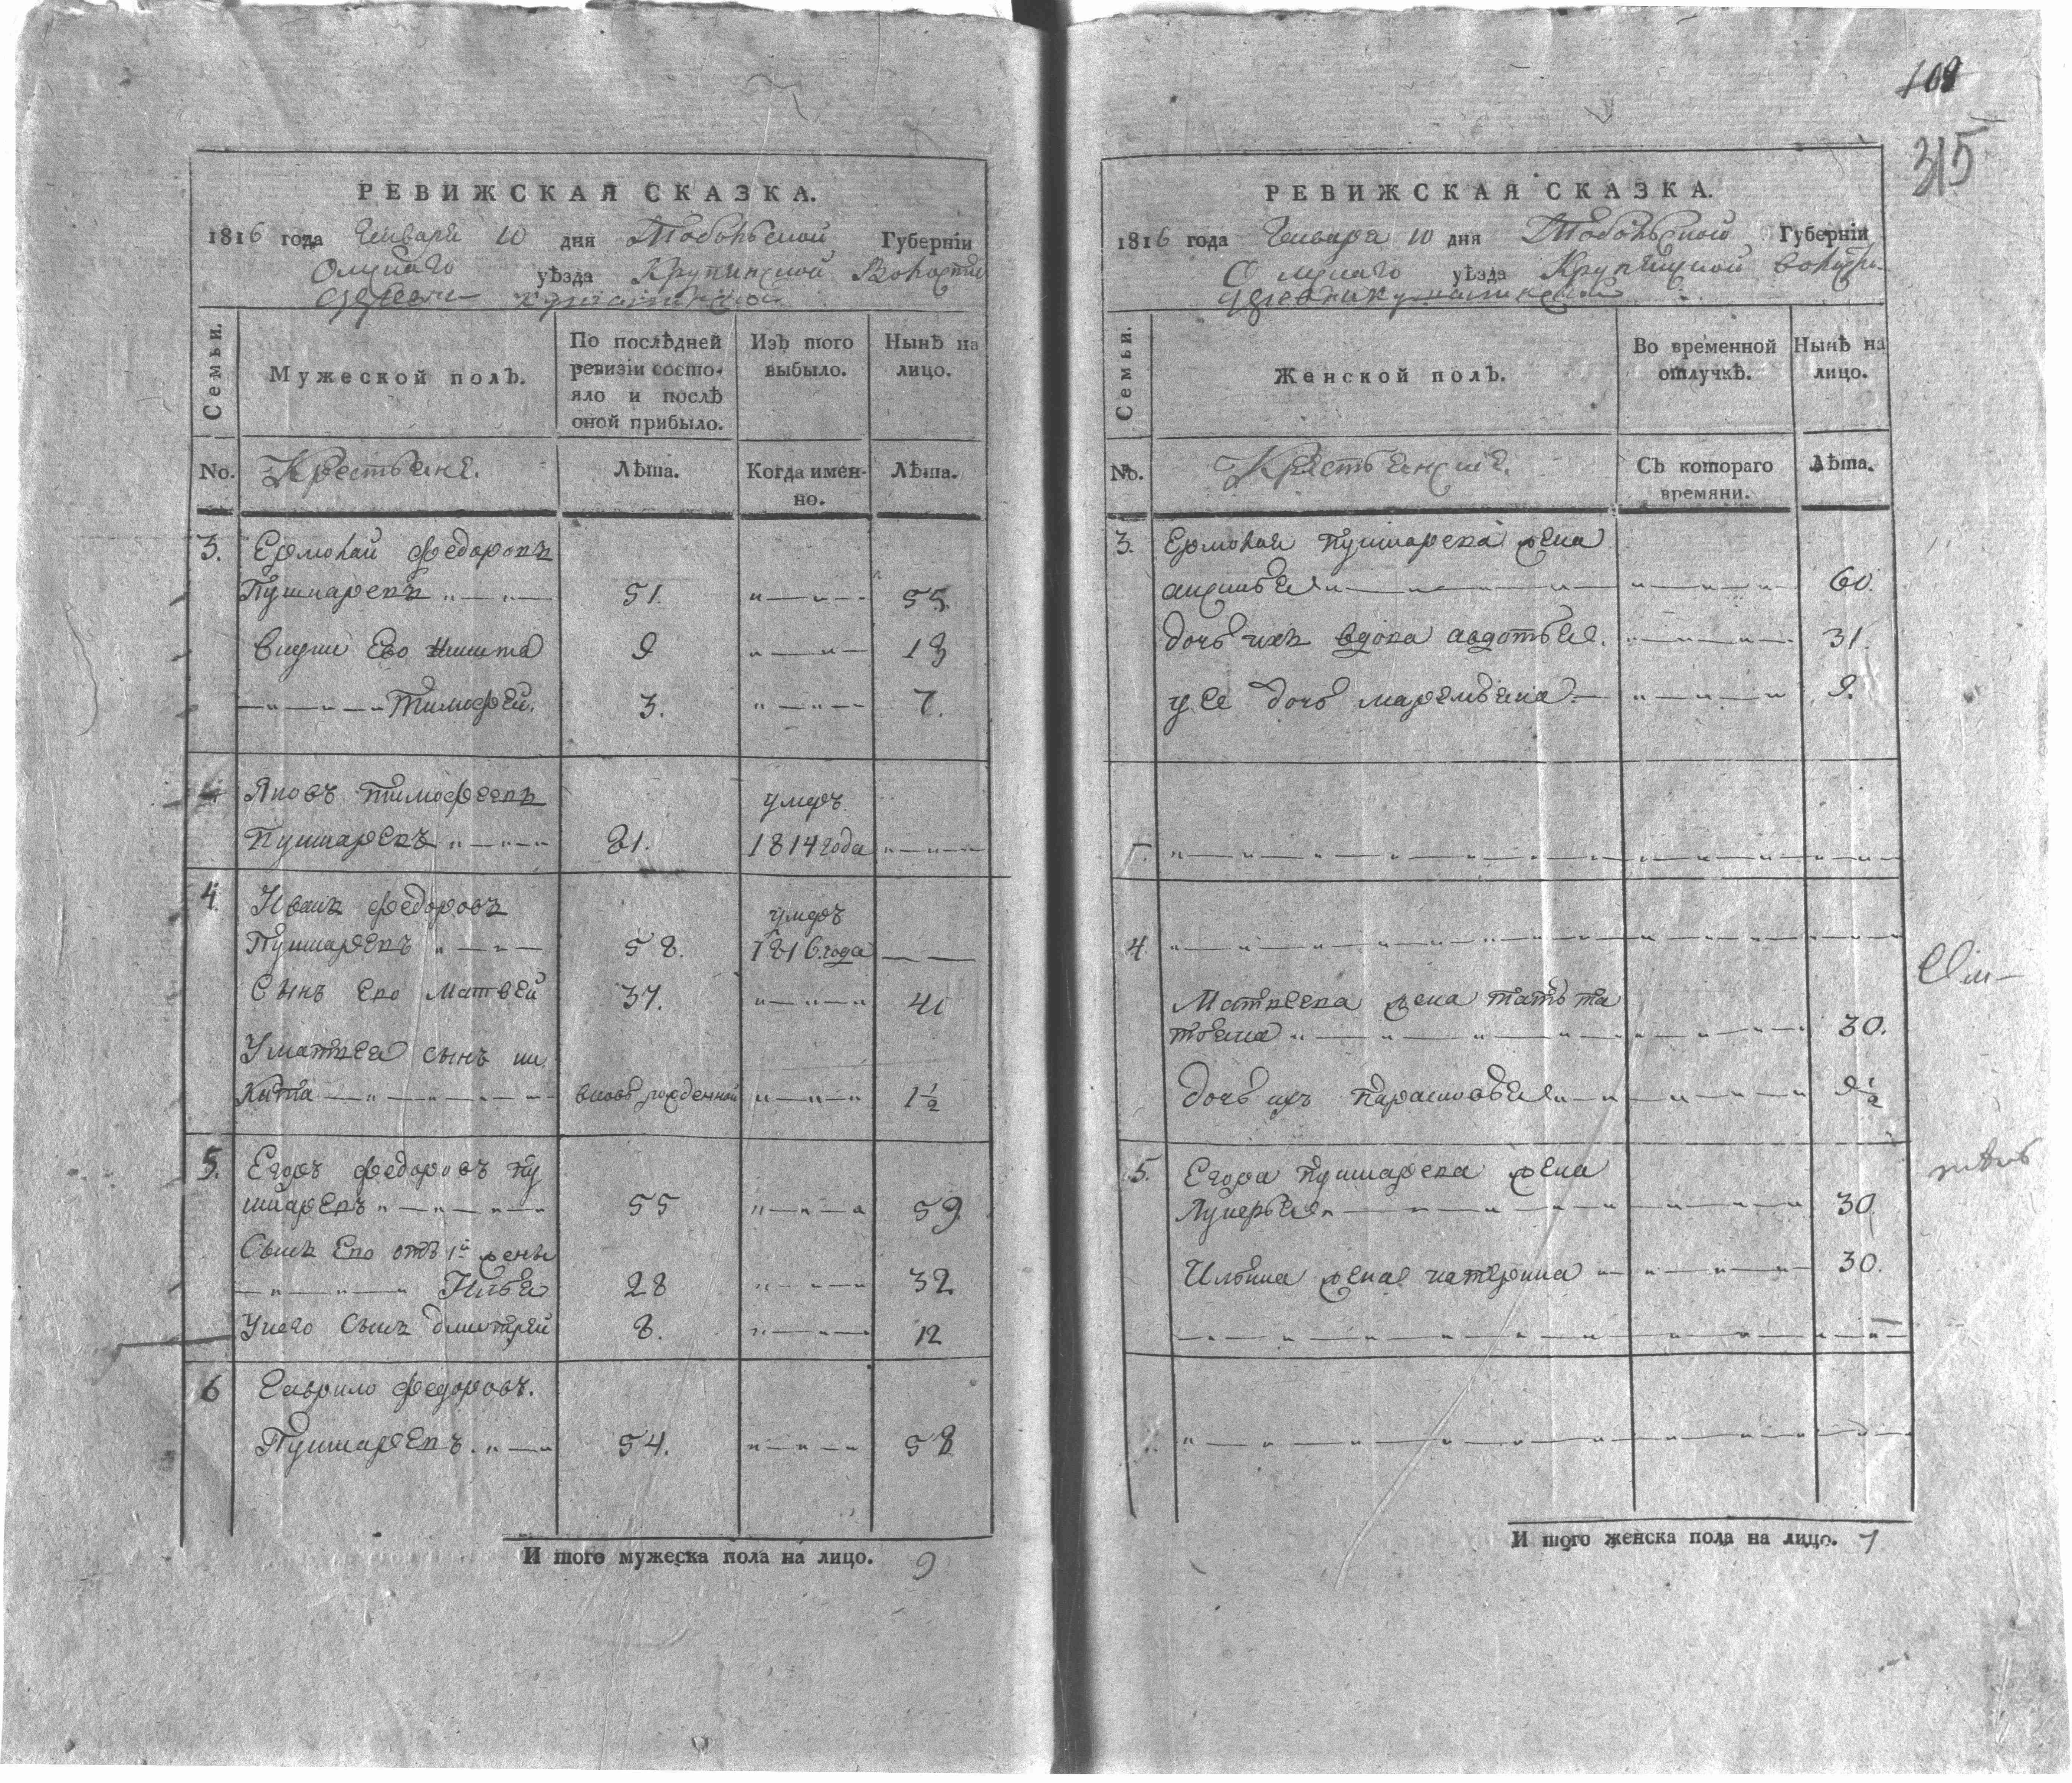 РЕВИЖСКАЯ СКАЗКА.
1816 года Генваря 10 дня Тобольской Губерніи
Омскаго уѣзда Крупинской Волости
деревни
Семьи.
Мужеской полъ.
По послѣдней ревизіи состо-
яло и послѣ
оной прибыло.
Изъ того
выбыло.
Нынѣ на
лицо.
No. Крестьяне. Лѣта. Когда имен-
но. Лѣта.
3. Ермолай Федоровъ
Пушкаревъ 51. 55.
внуки Ево Никита 9 13
Тимофей. 3. 7.
4 Яковъ Тимофеевъ умеръ
Пушкаревъ 21. 1814 года
4. Иванъ Федоровъ умеръ
Пушкаревъ 58. 1816 года
Сынъ Ево Матвей 37. 41
У матвея сынъ ни
кита вновь рожденной 1 1/2
5. Егоръ Федоровъ пу
шкаревъ 55 59
Сынъ Ево отъ 1й жены
Илья 28 32
У него Сынъ дмитрей 8. 12
6 Гаврило Федоровъ.
Пушкаревъ. 54. 58
И того мужеска пола на лицо. 9
109
315
РЕВИЖСКАЯ СКАЗКА.
1816 года Генваря 10 дня Тобольской Губерніи
Омскаго уѣзда Крупинской волости
деревни
Семьи.
Женской полъ.
Во временной
отлучкѣ.
Нынѣ на
лицо.
No. Крестьянские. Съ котораго
времяни. Лѣта.
3. Ермолая Пушкарева жена
60.
дочь ихъ вдова авдотья. 31.
у ее дочь маремьяна 9.
4
Матвеева жена тать та
тьяна 30.
дочь ихъ парасковья 9 1/2
5. Егора Пушкарева жена
Лукерья 30
Ильина жена катерина 30.
И того женска пола на лицо. 7